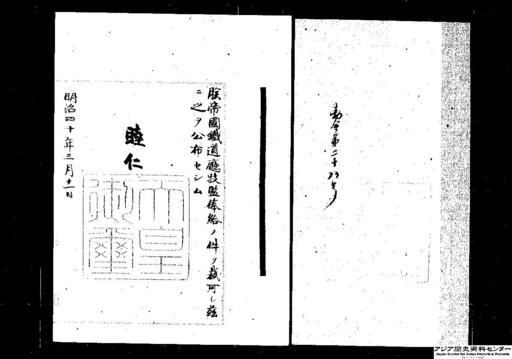 勅令第二十八号
朕帝國鐵道廳技監俸給ノ件ヲ裁可シ茲
ニ之ヲ公布セシム
睦仁
天皇
御璽
明治四十年三月十一日
アジア歴史資料センター
Japan Center for Asian Historical Records